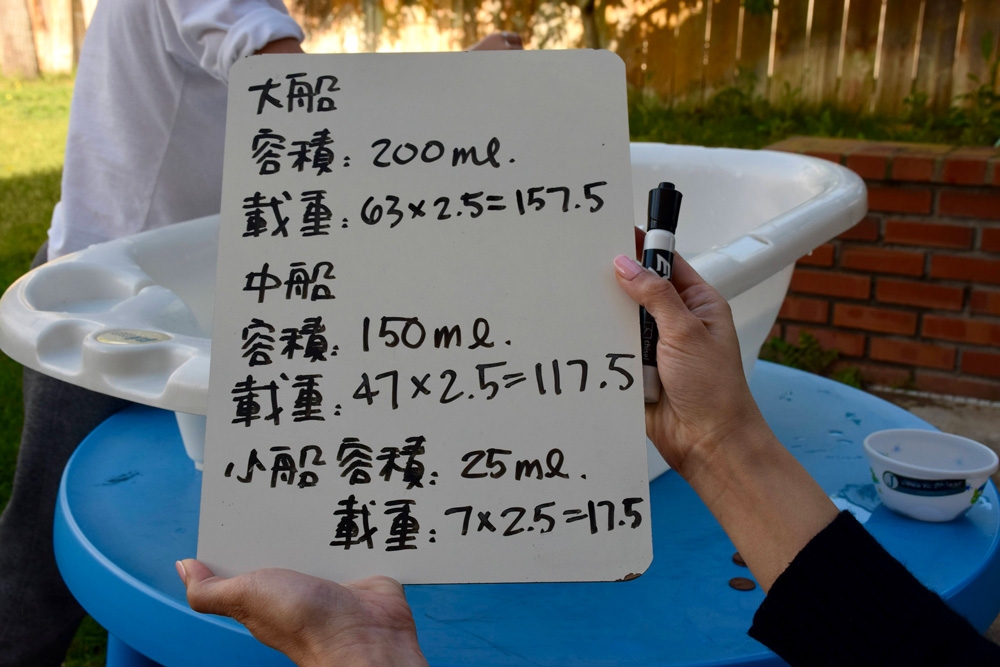 大船
容積: 200ml.
載重: 63×2.5=157.5
中船
容積: 150ml.
載重: 47×2.5=117.5
小船容積: 25ml.
載重: 7×2.5=17.5